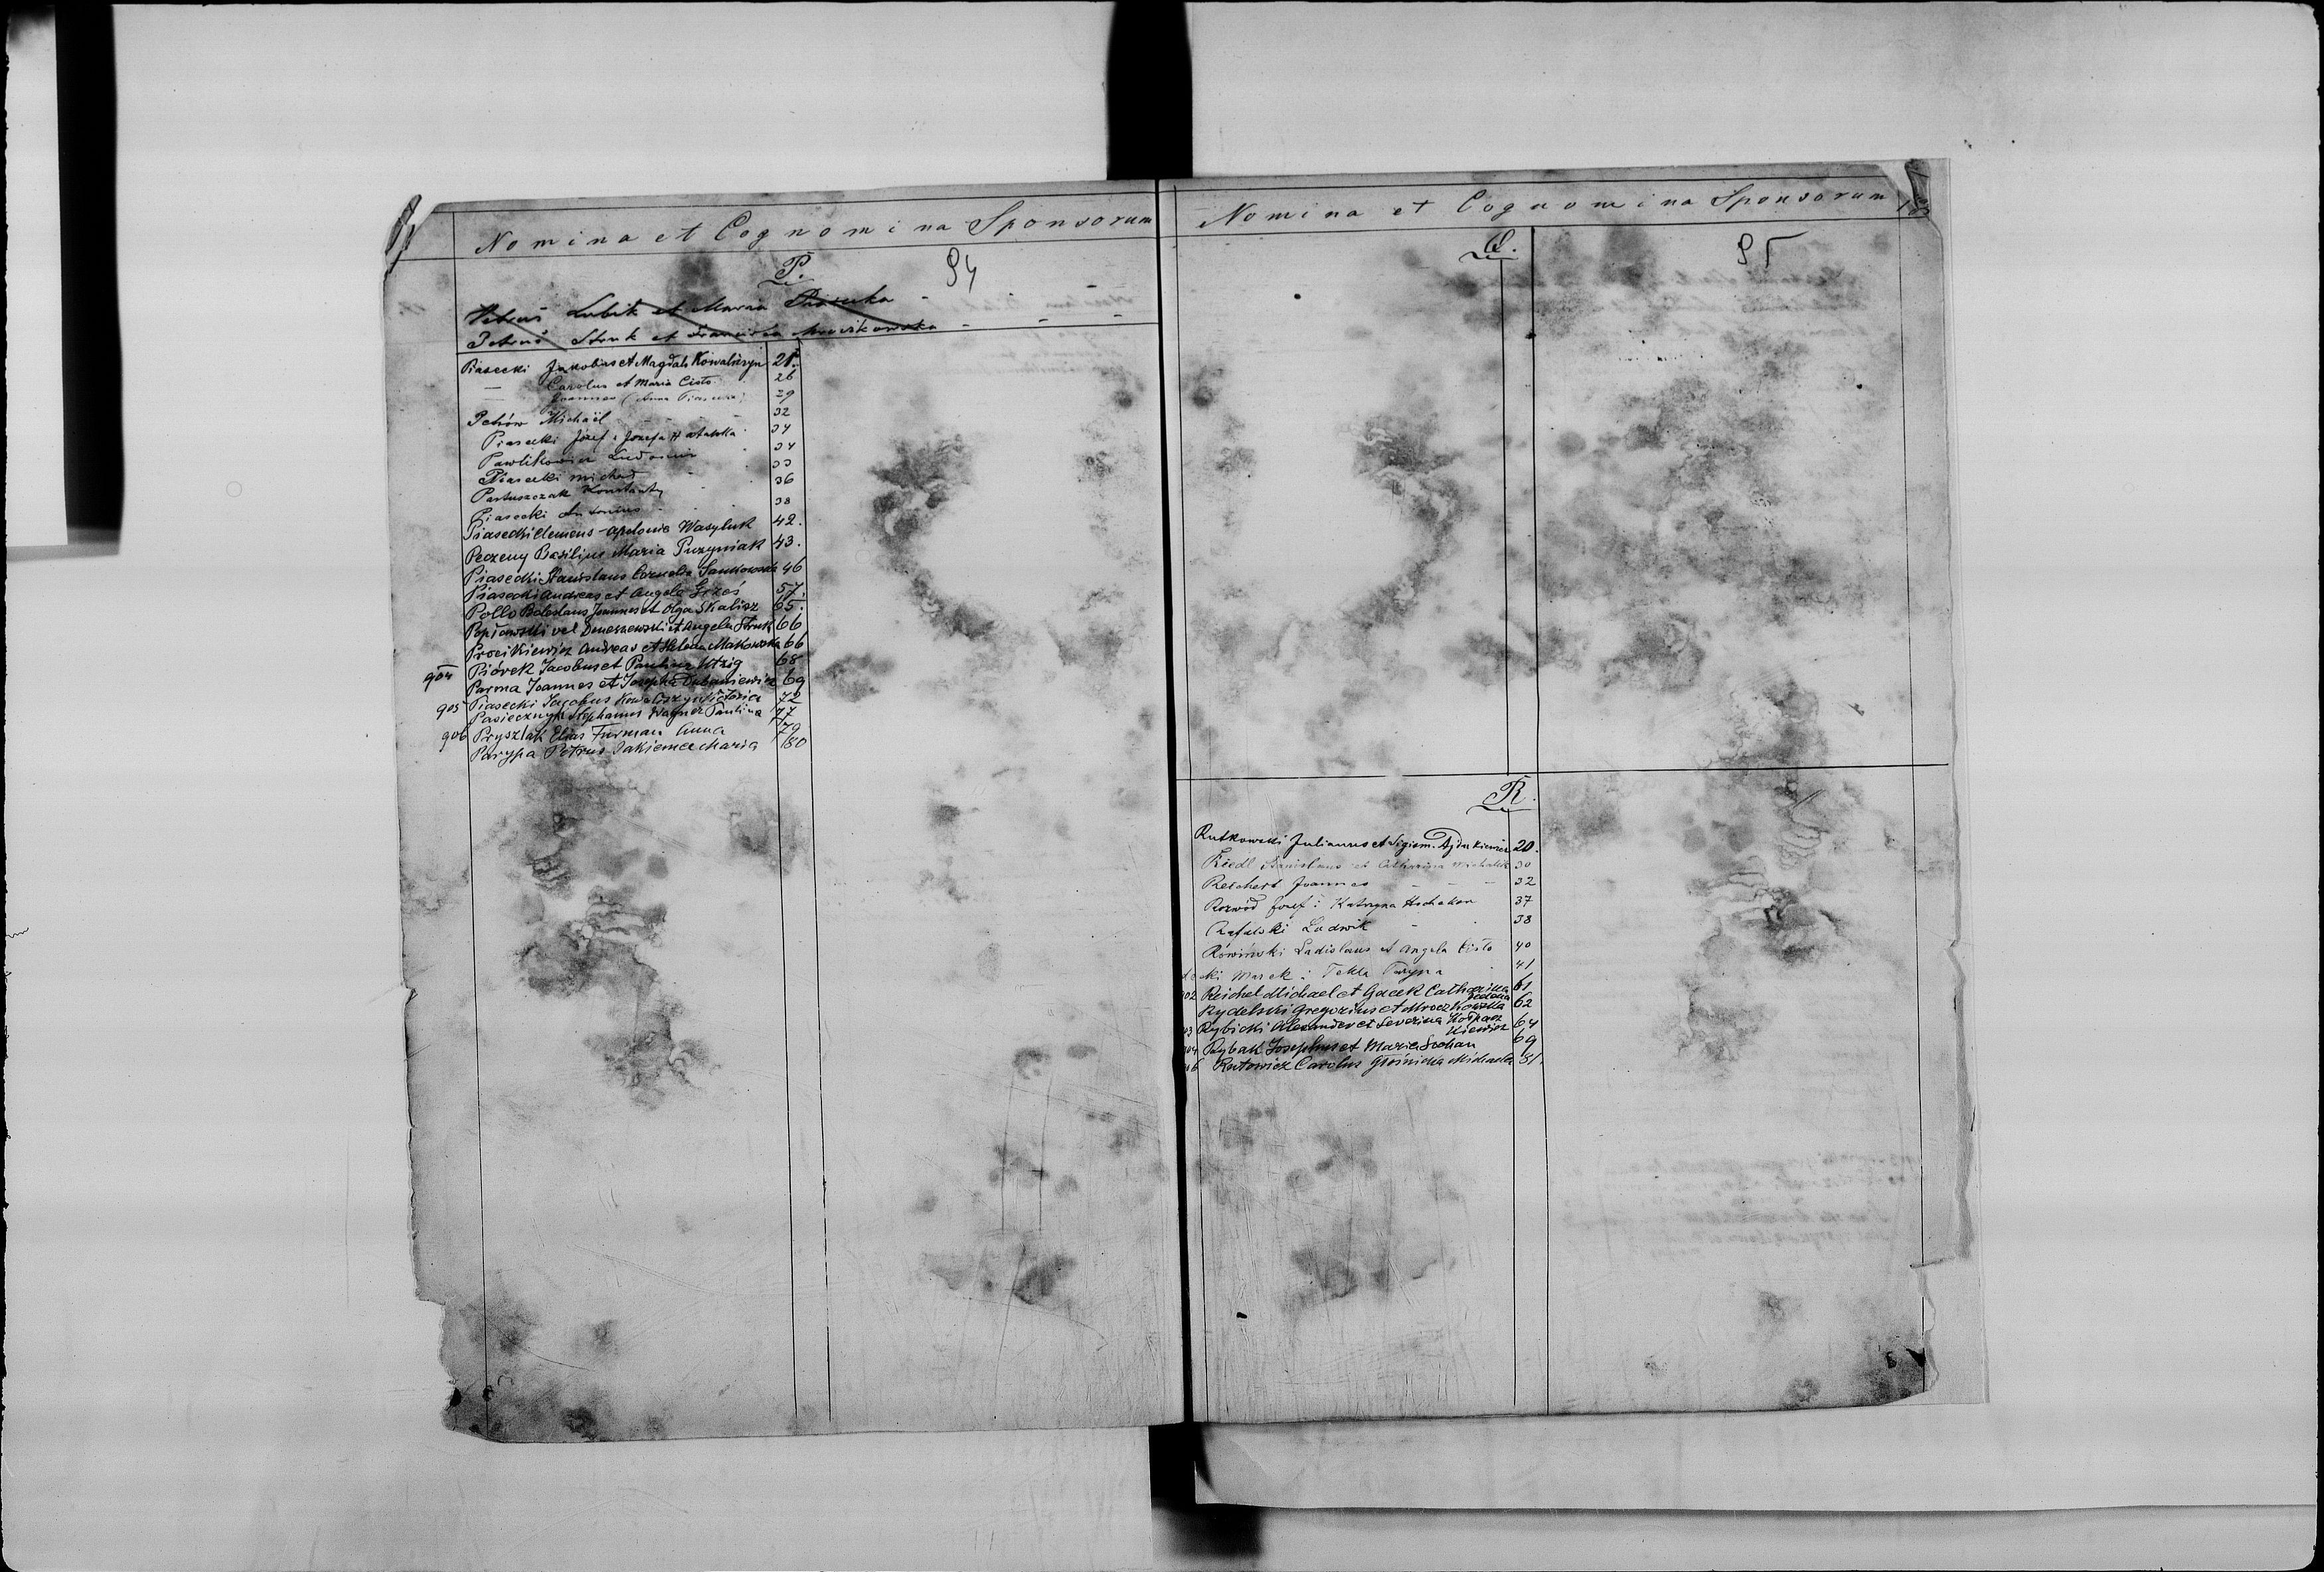 Nomina et Cognomina Sponsorum
P.
94
Petrus Lubik et Maria Piasecka
Petrus Struk et Francisca Mroczkowska
Piasecki Jakobus et Magdal. Kowaliszyn 21.
— Carolus et Maria Cisło 26
— Joannes (Anna Piasecka) 29
Petrów Michaël 32
Piasecki Józef i Józefa Hatalska 34
Pawlikowicz Ludovicus 34
Piasecki Michael 35
Partuszczak Konstanty 36
Piasecki Antonius 38
Piasecki Clemens - Apolonia Wasyluk 42.
Peczeny Basilius Maria Puzyniak 43.
Piasecki Stanislaus Cornelia Jankowska 46
Piasecki Andreas et Angela 57.
Pollo Boleslaus Joannes et Olga Skalisz 65.
Popławski vel Daneszewski et Angela Struk 66
Procikiewicz Andreas et Helena Makowska 66
904 Piórek Jacobus et Paulina Utzig 68
Parma Joannes et Josepha Urbaniewicz 69
905 Piasecki Jacobus Kowaliszyn Victoria 72
Pasiecznyk Stephanus Wagner Paulina 77
906 Pryszlak Elias Furman Anna 79
Parypa Petrus Jakiemec Maria 80
Nomina et Cognomina Sponsorum
Q.
95
R.
Rutkowski Julianus et Sigism. Ajdukiewicz 20.
Riedl Stanislaus et Catharina Michalik 30
Reichert Joannes 32
Rozwód Józef i Katarzyna 37
Rafalski Ludwik 38
Rówiński Ladislaus et Angela Cisło 40
cki Marek i Tekla Parypa 41
902 Reichel Michael et Gacek Catharina 61
Rydelski Gregorius et Mroczkowska Helena 62
03 Rybicki Alexander et Severina Kospaczkiewicz 64
904 Rybak Josephus et Maria Sochan 69
06 Rutowicz Carolus Głośnicka Michaela 81.